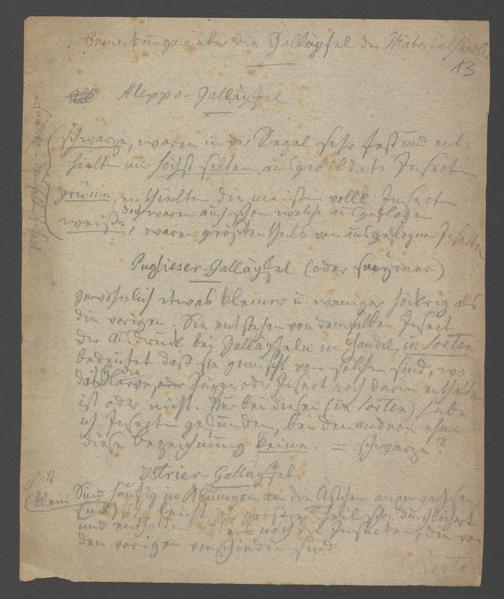 Bemerkungen über die Galläpfel der Materialhändler
13
Aleppo-Galläpfel
schwarze, waren in der Regel sehr fest und ent-
hielten nur höchst selten ausgebildete Insecten
grüne, enthielten die meisten vollk. Insecten
doch waren auch schon welche ausgeflogen
weiße, waren größten theils von ausgeflogenen Insecten
Puglieser-Galläpfel (oder Smyrnaer)
gewöhnlich etwas kleiner u. weniger höckrig als
die vorigen. Sie entstehen von demselben Insect
Der Ausdruck bei Galläpfeln im Handel, in Sorten
bedeutet daß sie gemischt von solchen sind, wo
die Larve, oder Insect noch darin enthalten
ist oder nicht. Nur bei diesen (in Sorten) habe
ich Insecten gefunden, bei den anderen ohne
diese Bezeichnung keine. = schwarze?
Istrier-Galläpfel
klein Sind häufig an die
sind leicht der größere Theil schon durchlöchert
und enthalten noch das Insect von
den vorigen verschieden sind.